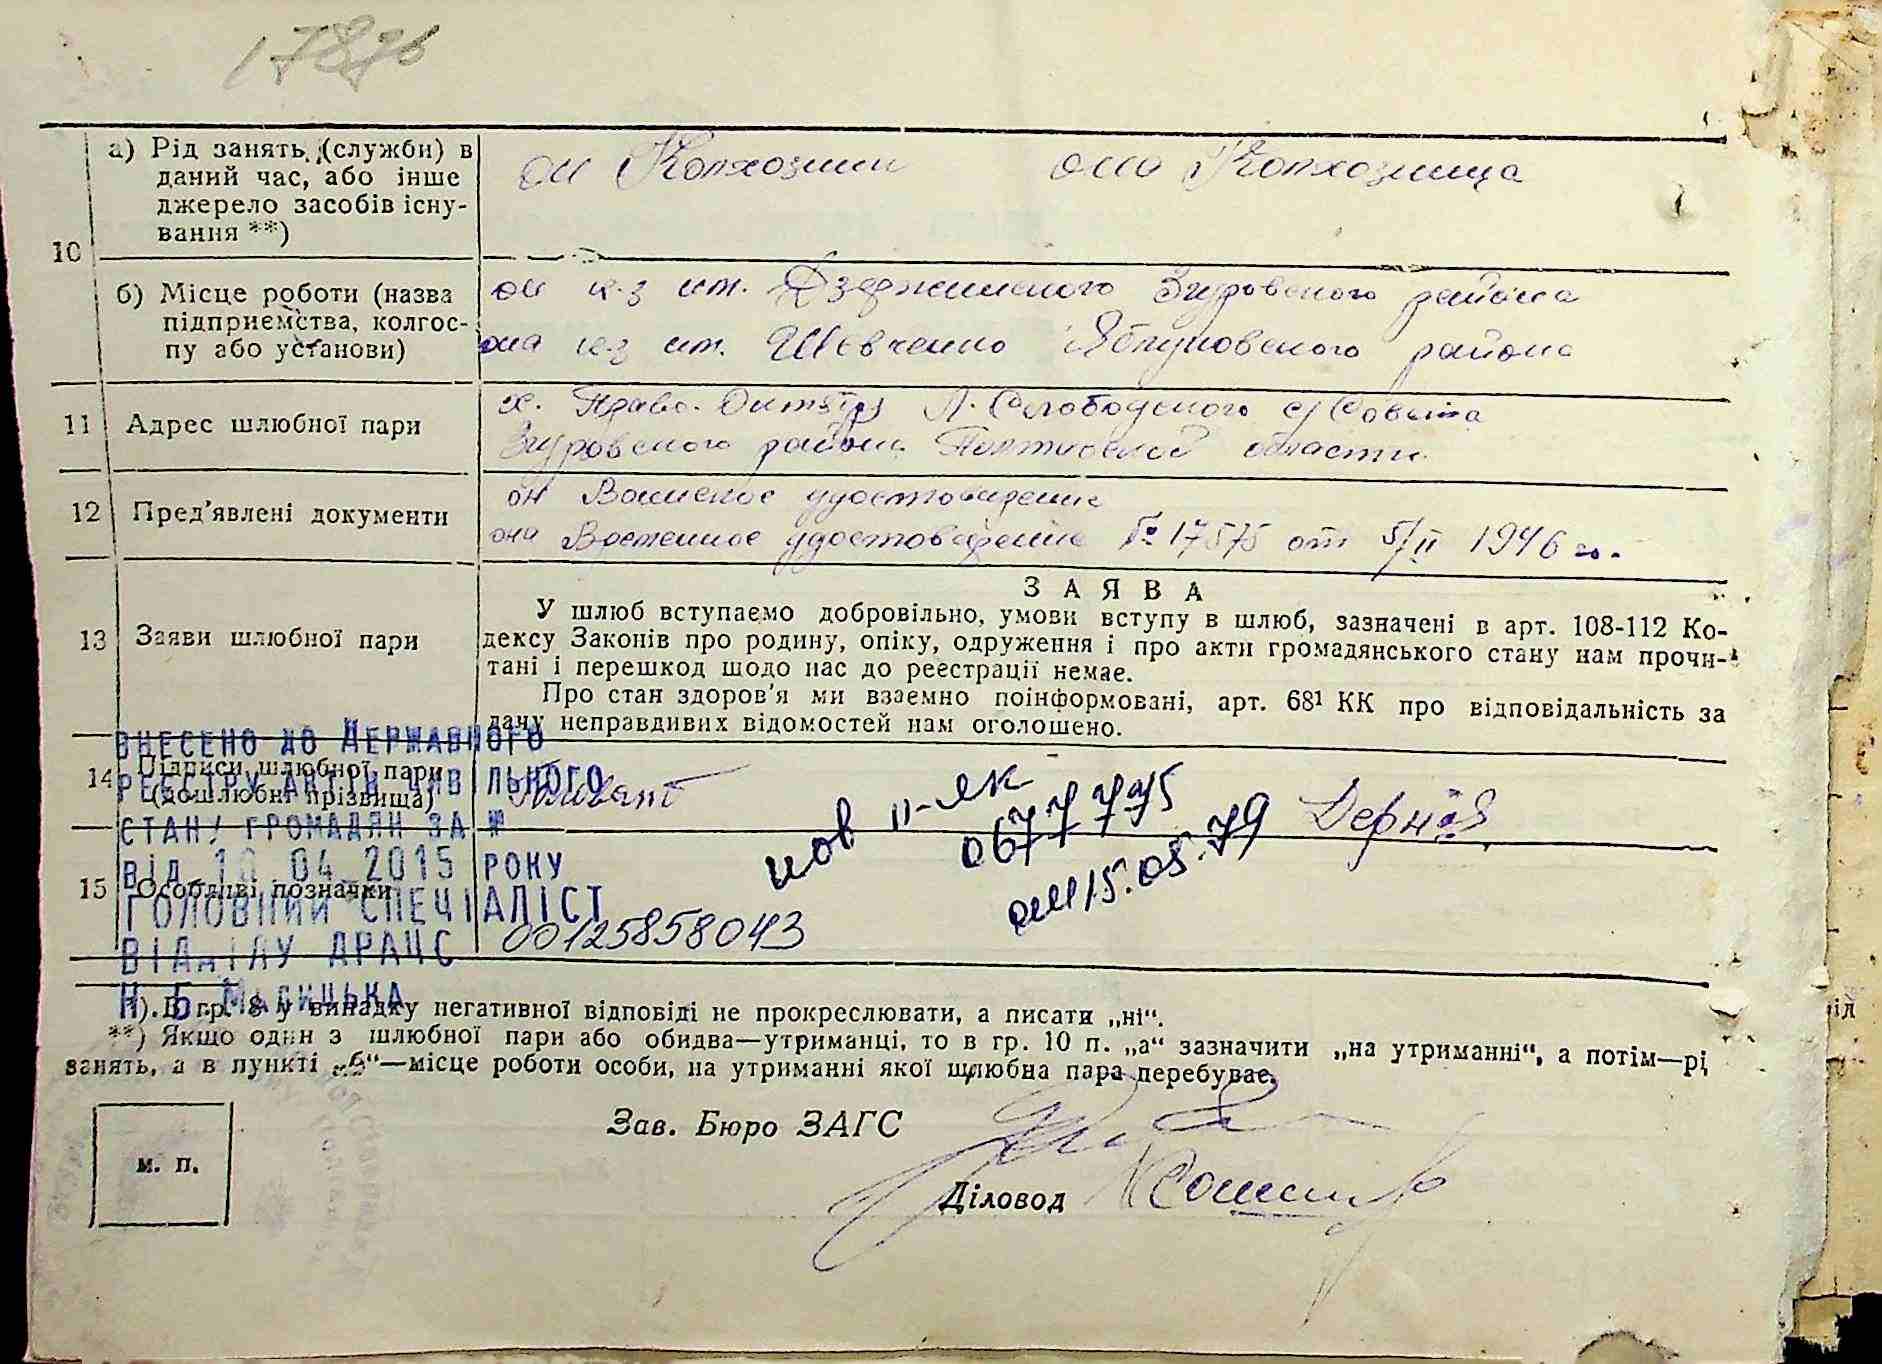 а) Рід занять (служби) в
даний час, або інше
джерело засобів існу-
вання **)
он Колхозник она Колхозница
10
б) Місце роботи (назва
підприємства, колгос-
пу або установи)
он к-з им. Дзержинского Згуровского района
она к-з им. Шевченко Яблуновского района
11 Адрес шлюбної пари
х. Право. Л. Слободского с/Совета
Згуровского района Полтавской области
12 Пред'явлені документи
он Военное удостоверение
она Временное удостоверение № 17575 от 5/II 1946 г.
13 Заяви шлюбної пари
ЗАЯВА
У шлюб вступаємо добровільно, умови вступу в шлюб, зазначені в арт. 108-112 Ко-
дексу Законів про родину, опіку, одруження і про акти громадянського стану нам прочи-
тані і перешкод щодо нас до реєстрації немає.
Про стан здоров'я ми взаємно поінформовані, арт. 68¹ КК про відповідальність за
дачу неправдивих відомостей нам оголошено.
14 Підписи шлюбної пари
(дошлюбні прізвища)
15 Особливі позначки
ВНЕСЕНО ДО ДЕРЖАВНОГО
РЕЄСТРУ АКТІВ ЦИВІЛЬНОГО
СТАНУ ГРОМАДЯН ЗА №
ВІД 10 04 2015 РОКУ
ГОЛОВНИЙ СПЕЦІАЛІСТ
ВІДДІЛУ ДРАЦС
00125858043
пов II-ЯК
067 7 795
от 15.05.79
*). В гр. 8 у випадку негативної відповіді не прокреслювати, а писати „ні“.
**) Якщо один з шлюбної пари або обидва—утриманці, то в гр. 10 п. „а“ зазначити „на утриманні“, а потім—рі
занять, а в пункті „б“—місце роботи особи, на утриманні якої шлюбна пара перебуває.
Зав. Бюро ЗАГС
м. п.
Діловод